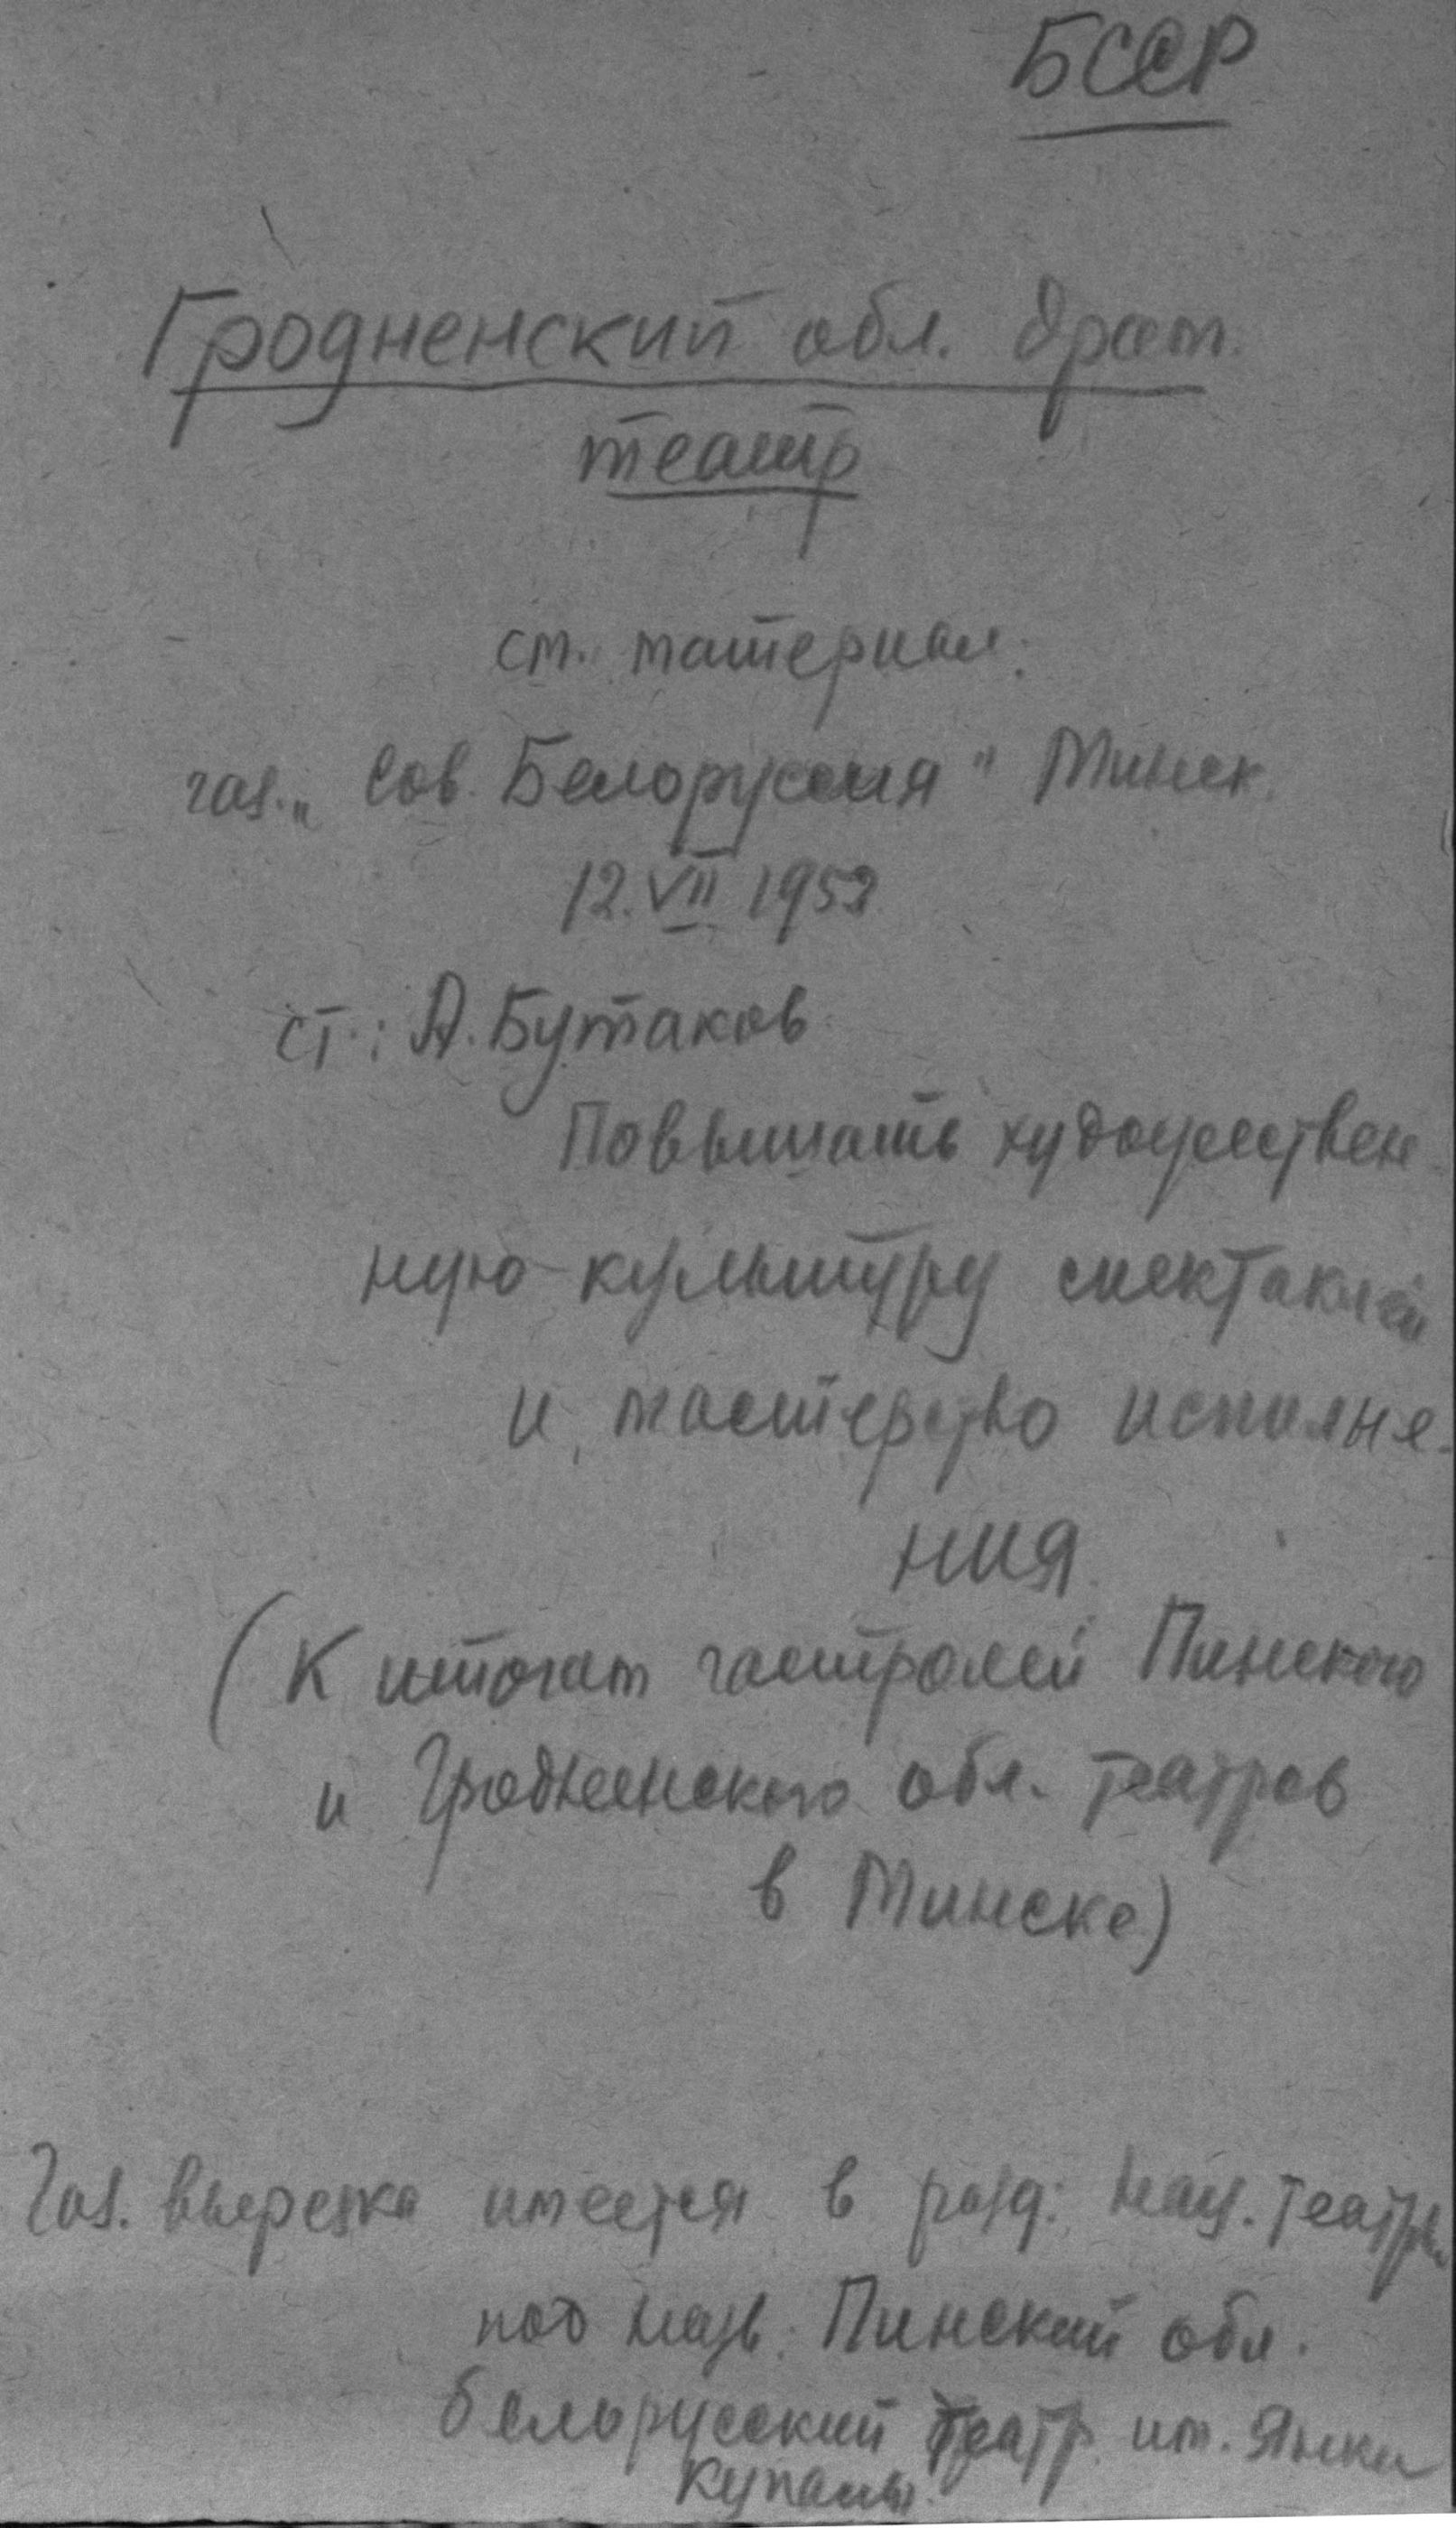 БССР
Гродненский обл. драм.
театр
см. материал:
газ. „Сов. Белоруссия" Минск.
12.VII 1952
ст.: А. Бутаков
Повышать художествен
ную культуру спектаклей
и мастерство исполне-
ния
(К итогам гастролей Пинского
и Гродненского обл. театров
в Минске)
Газ. вырезка имеется в разд: Нац. театры
под назв: Пинский обл.
белорусский театр им. Янки
Купалы.